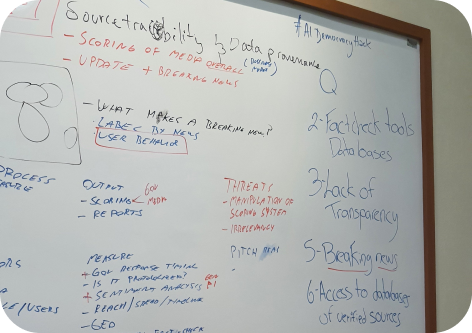 Sourcetraceability & Data provenance
# AI Democracy Hack
- SCORING OF MEDIA OVERALL
- UPDATE + BREAKING NEWS
Q
- WHAT MAKES A BREAKING NEWS?
LABEL BY NEWS
USER BEHAVIOR
2-Factcheck tools
Databases
3-Lack of
Transparency
5-Breaking news
6-Access to databases
of verified sources
PROCESS
OUTPUT
- SCORING
GOV
MEDIA
- REPORTS
THREATS
- MANIPULATION OF
SCORING SYSTEM
- IRRELEVANCY
PITCH
MEASURE
+ GOV RESPONSE TIMING
- IS IT
+ SENTIMENT ANALYSIS
- REACH/SPEED/TIMELINE
- GEO
/USERS